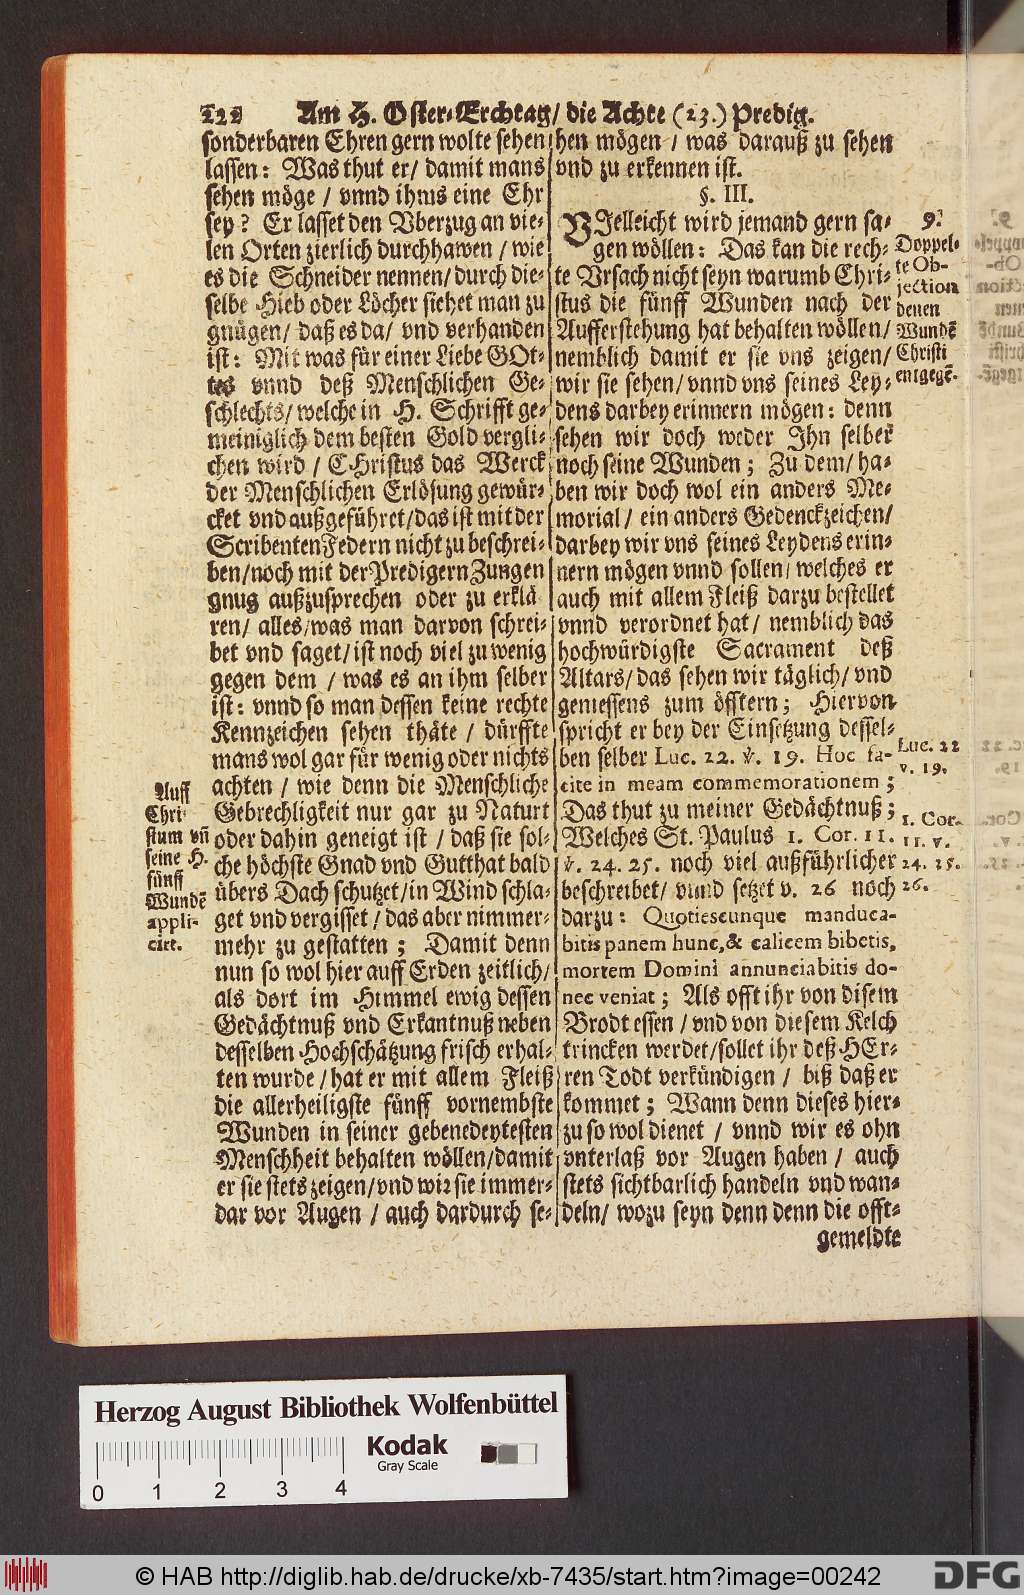 222 Am H. Oster-Erchtag/ die Achte (23.) Predig.
sonderbaren Ehren gern wolte sehen
lassen: Was thut er/ damit mans
sehen möge / vnnd ihms eine Ehr
sey? Er lasset den Vberzug an vie-
len Orten zierlich durchhawen / wie
es die Schneider nennen/ durch die-
selbe Hieb oder Löcher siehet man zu
gnügen/ daß es da/ vnd verhanden
ist: Mit was für einer Liebe GOt-
tes vnnd deß Menschlichen Ge-
schlechts/ welche in H. Schrifft ge-
meiniglich dem besten Gold vergli-
chen wird / CHristus das Werck
der Menschlichen Erlösung gewür-
cket vnd außgeführet/ das ist mit der
Scribenten Federn nicht zu beschrei-
ben/ noch mit der Predigern Zungen
gnug außzusprechen oder zu erklä
ren/ alles/ was man darvon schrei-
bet vnd saget/ ist noch viel zu wenig
gegen dem / was es an ihm selber
ist: vnnd so man dessen keine rechte
Kennzeichen sehen thäte / dürffte
mans wol gar für wenig oder nichts
achten / wie denn die Menschliche
Gebrechligkeit nur gar zu Naturt
oder dahin geneigt ist / daß sie sol-
che höchste Gnad vnd Gutthat bald
übers Dach schutzet/ in Wind schla-
get vnd vergisset / das aber nimmer-
mehr zu gestatten ; Damit denn
nun so wol hier auff Erden zeitlich/
als dort im Himmel ewig dessen
Gedächtnuß vnd Erkantnuß neben
desselben Hochschätzung frisch erhal-
ten wurde / hat er mit allem Fleiß
die allerheiligste fünff vornembste
Wunden in seiner gebenedeytesten
Menschheit behalten wöllen/ damit
er sie stets zeigen/ vnd wir sie immer-
dar vor Augen / auch dardurch se-
Auff
Chri-
stum vñ
seine H.
fünff
Wundẽ
appli-
cirt.
hen mögen / was darauß zu sehen
vnd zu erkennen ist.
§. III.
VIelleicht wird jemand gern sa-
gen wöllen: Das kan die rech-
te Vrsach nicht seyn warumb Chri-
stus die fünff Wunden nach der
Aufferstehung hat behalten wöllen/
nemblich damit er sie vns zeigen/
wir sie sehen/ vnnd vns seines Ley-
dens darbey erinnern mögen: denn
sehen wir doch weder Ihn selber
noch seine Wunden ; Zu dem/ ha-
ben wir doch wol ein anders Me-
morial/ ein anders Gedenckzeichen/
darbey wir vns seines Leydens erin-
nern mögen vnnd sollen/ welches er
auch mit allem Fleiß darzu bestellet
vnnd verordnet hat/ nemblich das
hochwürdigste Sacrament deß
Altars/ das sehen wir täglich/ vnd
geniessens zum öfftern; Hiervon
spricht er bey der Einsetzung dessel-
ben selber Luc. 22. ℣. 19. Hoc fa-
cite in meam commemorationem ;
Das thut zu meiner Gedächtnuß;
Welches St. Paulus 1. Cor. 11.
℣. 24. 25. noch viel außführlicher
beschreibet/ vnnd setzet v. 26 noch
darzu: Quotiescunque manduca-
bitis panem hunc, & calicem bibetis,
mortem Domini annunciabitis do-
nec veniat ; Als offt ihr von disem
Brodt essen / vnd von diesem Kelch
trincken werdet/ sollet ihr deß HEr-
ren Todt verkündigen / biß daß er
kommet ; Wann denn dieses hier-
zu so wol dienet / vnnd wir es ohn
vnterlaß vor Augen haben / auch
stets sichtbarlich handeln vnd wan-
deln/ wozu seyn denn denn die offt-
gemeldte
9.
Doppel-
te Ob-
jection
denen
Wundẽ
Christi
entgegẽ.
Luc. 22
v. 19.
1. Cor.
11. v.
24. 25.
26.
Herzog August Bibliothek Wolfenbüttel
Kodak
Gray Scale
0 1 2 3 4
© HAB http://diglib.hab.de/drucke/xb-7435/start.htm?image=00242
DFG